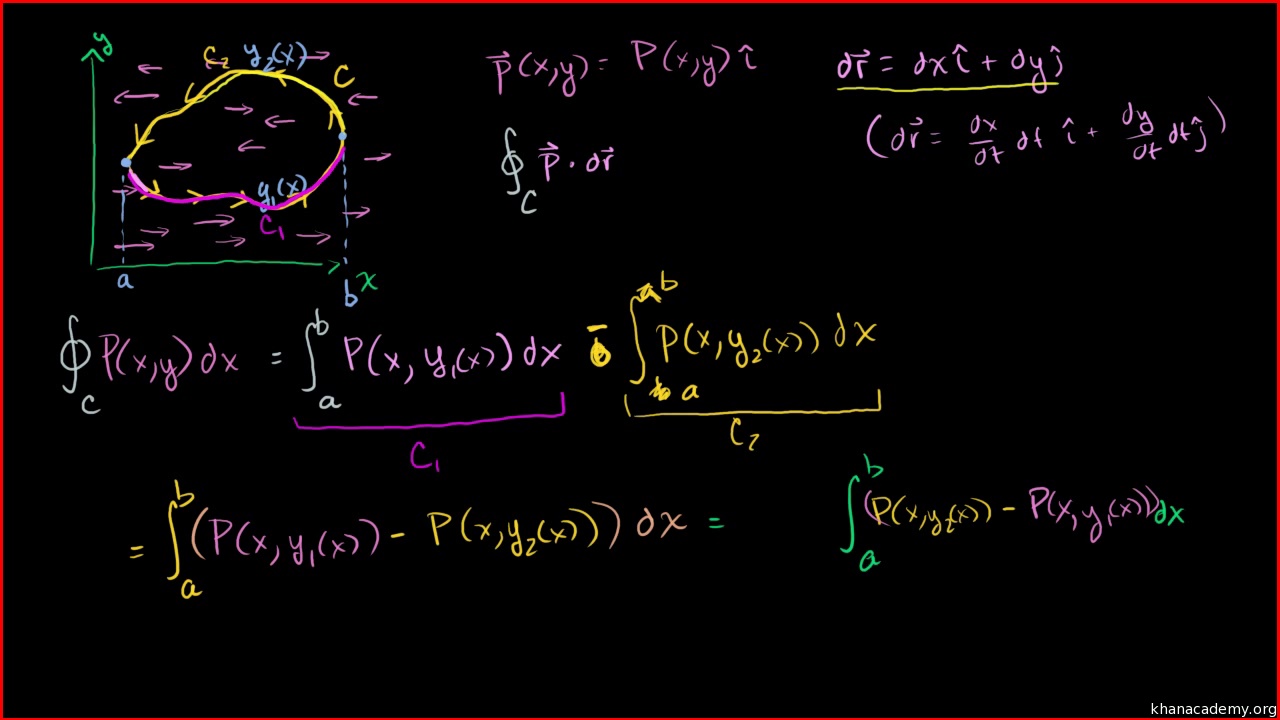 y
C₂ y₂(x)
C
y₁(x)
C₁
a
b x
p⃗(x,y) = P(x,y) î
∮_C p⃗ · dr⃗
dr⃗ = dx î + dy ĵ
(dr⃗ = dx/dt dt î + dy/dt dt ĵ)
∮_C P(x,y) dx = ∫_a^b P(x, y₁(x)) dx - ∫_a^b P(x, y₂(x)) dx
C₁ C₂
= ∫_a^b (P(x, y₁(x)) - P(x, y₂(x))) dx = ∫_a^b (P(x, y₂(x)) - P(x, y₁(x))) dx
khanacademy.org